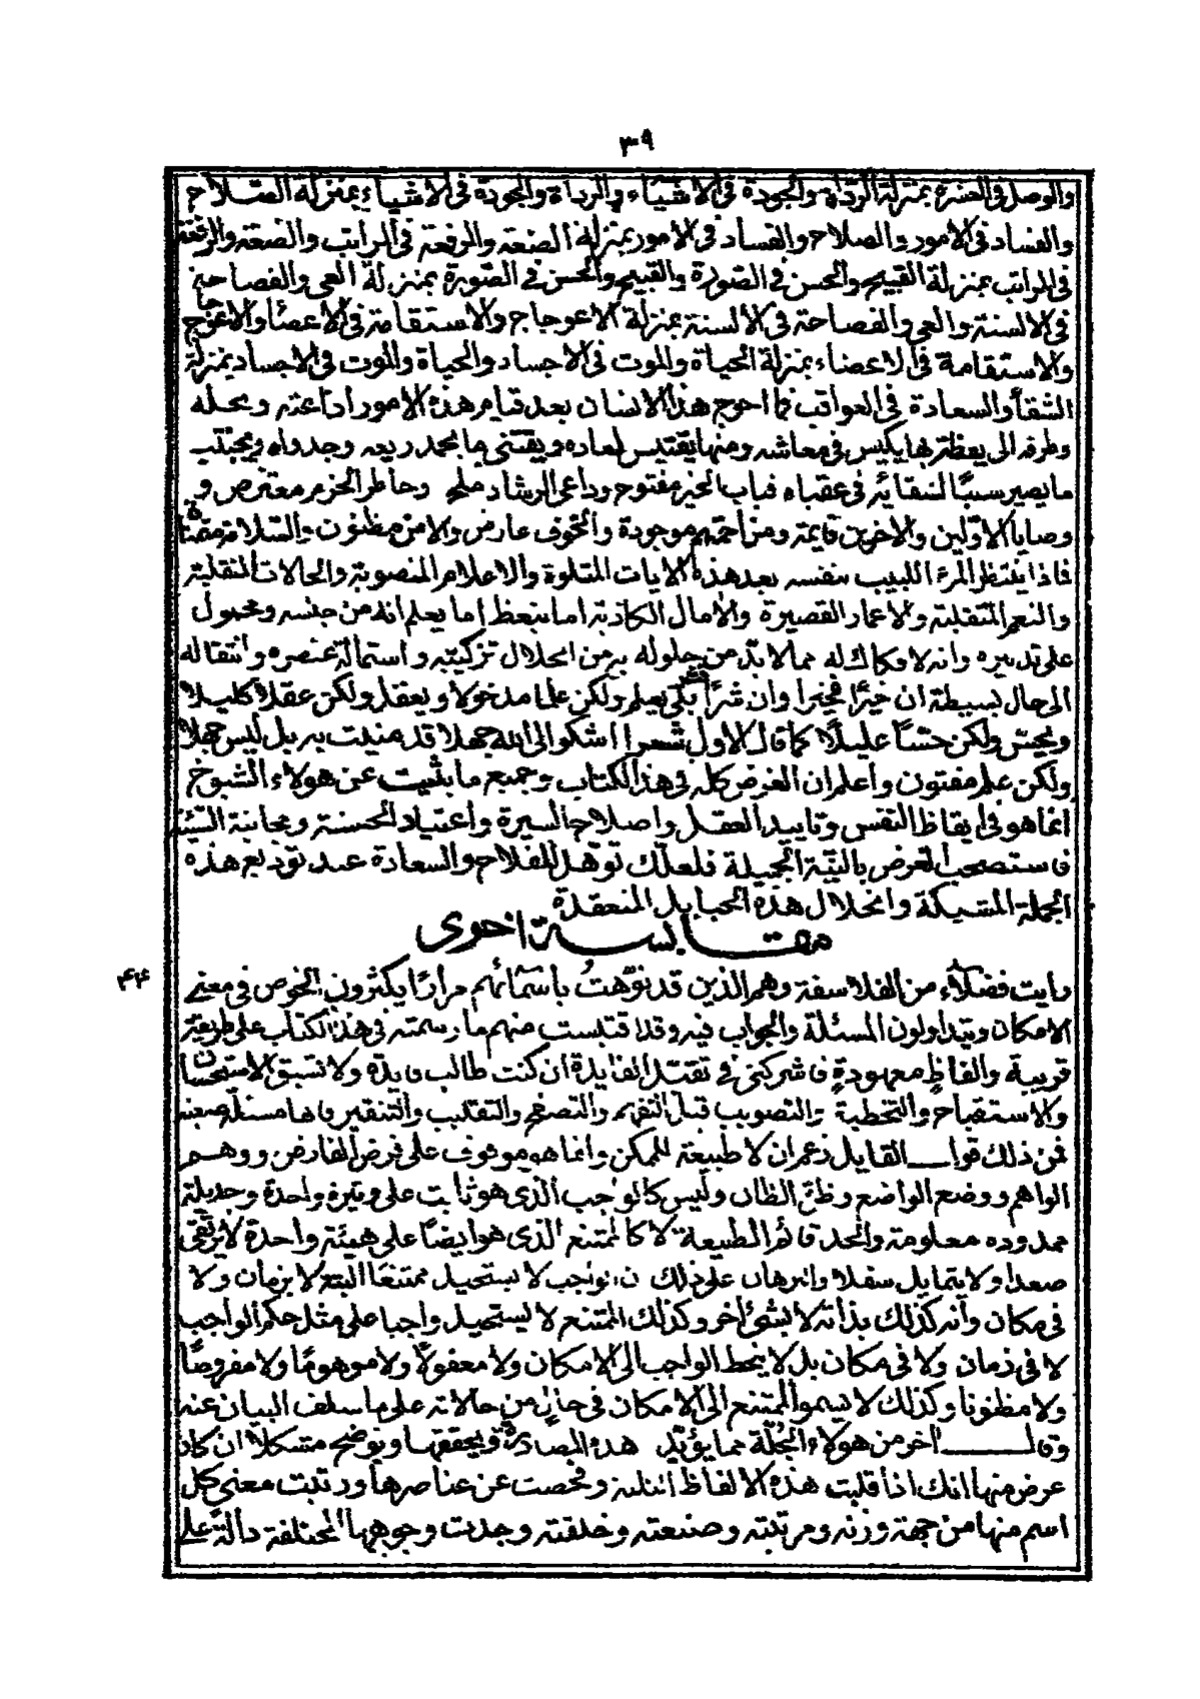 ٣٩
والوصل في العشرة بمنزلة الرداة والجودة في الاشياء والرداة والجودة في الاشياء بمنزلة الصلاح
والفساد في الامور والصلاح والفساد في الأمور بمنزلة الضعة والرفعة في المراتب والضعة والرفعة
في المراتب بمنزلة القبيح والحسن في الصورة والقبيح والحسن في الصورة بمنزلة العي والفصاحة
في الالسنة والعي والفصاحة في الألسنة بمنزلة الاعوجاج والاستقامة في الاعضأ والاعوجاج
والاستقامة في الاعضاء بمنزلة الحياة والموت في الاجساد والحياة والموت في الاجساد بمنزلة
الشقأ والسعادة في العواقب فما احوج هذا الانسان بعد قيام هذه الامور اذا عته ومحله
وطرفه الى يعظة بها يكيس في معاشه ومنها يقتبس لمعاده ويقتني ما يحمد ريعه وجدواه ويجتنب
ما يصير سببًا لشقائه في عقباه فباب الخير مفتوح وداعى الرشاد ملح وخاطر الحزم معترض و
وصايا الاولين والاخرين قايمة ومزاحمتهم موجودة والخوف عارض والامن مظنون والسلامة متمناة
فاذا ينتظر المرء اللبيب بنفسه بعد هذه الايات المتلوة والاعلام المنصوبة والحالات المنقلبة
والنعم المتقلبة والاعمار القصيرة والامال الكاذبة اما يتعظ اما يعلم انه من جنسه ومحمول
على تدبيره وانه لا فكاك له مما لا بد من حلوله به من انحلال تركيبه واستمالة عنصره وانتقاله
الى حال بسيطة ان خيرًا فخيرا وان شرًا فشر بلى يعلم ولكن علما مدخولا ويعقل ولكن عقلا كليلا
ويحس ولكن حسًا عليلًا كما قال الاول شعرا اشكو الى الله جهلا قد منيت به بل ليس جهلا
ولكن علم مفتون واعلم ان الغرض كله في هذا الكتاب وجميع ما يثبت عن هولاء الشيوخ
انما هو في ايقاظ النفس وتاييد العقل واصلاح السيرة واعتياد الحسنة ومجانبة السيئة
فاستصحب الغرض بالنية الجميلة فلعلك توهل للفلاح والسعادة عند توديع هذه
الجملة المتسيكة وانحلال هذه الحبايل المنعقدة
مقابسة اخرى
٤٤
رايت فضلاء من الفلاسفة وهم الذين قد نوهتُ باسمائهم مرارًا يكثرون الخوض في معنى
الامكان ويتداولون المسئلة والجواب فيه وقد اقتبست منهم ما رسمته في هذا الكتاب على طريقة
قريبة والفاظٍ معهودةٍ فاشركني في تقبل الفايدة ان كنت طالب فايدة ولا تسبق الاستحسان
والاستقباح والتخطية والتصويب قبل التفهم والتصفح والتقليب والتنقير فانها مسئلة صعبة
فمن ذلك قول القايل زعم ان لا طبيعة للممكن وانما هو موقوف على فرض الفارض ووهم
الواهم ووضع الواضع وظن الظان وليس كالواجب الذى هو ثابت على وتيرة واحدة وجديلة
ممدوده معلومة والحد قائم الطبيعة لا كالممتنع الذى هو ايضًا على هيئة واحدة لا يرتقى
صعدا ولا يتمايل سفلا والبرهان على ذلك ان الواجب لا يستحيل ممتنعًا البتة لا بزمان ولا
في مكان وانه كذلك بذاته لا بشئ اخر وكذلك الممتنع لا يستحيل واجبا على مثل حكم الواجب
لا في زمان ولا في مكان بل لا ينحط الواجب الى الامكان ولا معقولًا ولا موهومًا ولا مفروضًا
ولا مظنونا وكذلك لا يسمو الممتنع الى الامكان في حالٍ من حالاته على ما سلف البيان عنه
وقال اخر من هولاء الجلّة مما يؤيد هذه المصادرة ويحققها ويوضح مشكلا ان كان
عرض منها انك اذا قلبت هذه الالفاظ الثلثه وفحصت عن عناصرها ورتبت معنى كل
اسم منها من جهة وزنه ومرتبته وصنعته وخلقته وجدت وجوهها المختلفة دالّة على